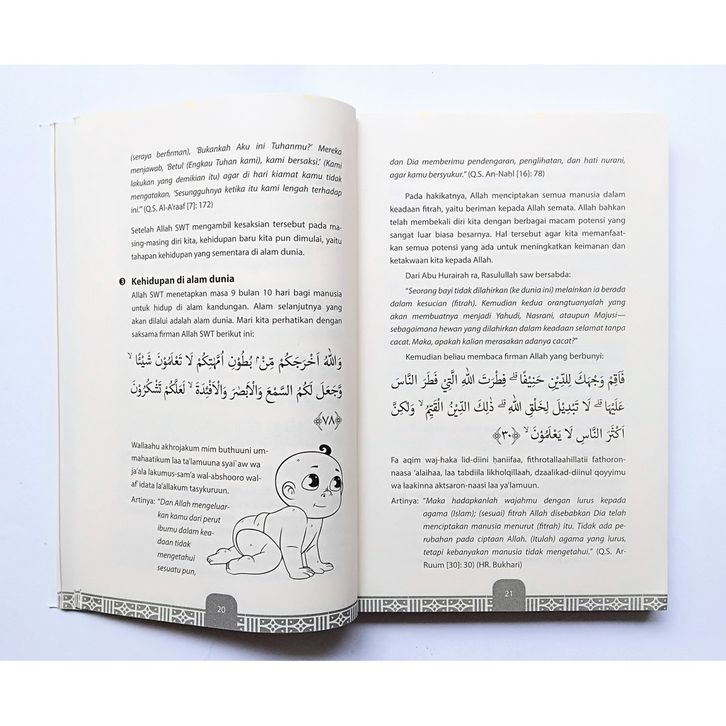 (seraya berfirman), 'Bukankah Aku ini Tuhanmu?' Mereka
menjawab, 'Betul (Engkau Tuhan kami), kami bersaksi.' (Kami
lakukan yang demikian itu) agar di hari kiamat kamu tidak
mengatakan, 'Sesungguhnya ketika itu kami lengah terhadap
ini.'" (Q.S. Al-A'raaf [7]: 172)
Setelah Allah SWT mengambil kesaksian tersebut pada ma-
sing-masing diri kita, kehidupan baru kita pun dimulai, yaitu
tahapan kehidupan yang sementara di alam dunia.
3 Kehidupan di alam dunia
Allah SWT menetapkan masa 9 bulan 10 hari bagi manusia
untuk hidup di alam kandungan. Alam selanjutnya yang
akan dilalui adalah alam dunia. Mari kita perhatikan dengan
saksama firman Allah SWT berikut ini:
وَاللّٰهُ اَخْرَجَكُمْ مِّنْۢ بُطُوْنِ اُمَّهٰتِكُمْ لَا تَعْلَمُوْنَ شَيْـًٔا ۙ
وَّجَعَلَ لَكُمُ السَّمْعَ وَالْاَبْصٰرَ وَالْاَفْـِٕدَةَ ۙ لَعَلَّكُمْ تَشْكُرُوْنَ
﴿٧٨﴾
Wallaahu akhrojakum mim buthuuni um-
mahaatikum laa ta'lamuuna syai`aw wa
ja'ala lakumus-sama'a wal-abshooro wal-
af idata la'allakum tasykuruun.
Artinya: "Dan Allah mengeluar-
kan kamu dari perut
ibumu dalam kea-
daan tidak
mengetahui
sesuatu pun,
20
dan Dia memberimu pendengaran, penglihatan, dan hati nurani,
agar kamu bersyukur." (Q.S. An-Naḥl [16]: 78)
Pada hakikatnya, Allah menciptakan semua manusia dalam
keadaan fitrah, yaitu beriman kepada Allah semata. Allah bahkan
telah membekali diri kita dengan berbagai macam potensi yang
sangat luar biasa besarnya. Hal tersebut agar kita memanfaat-
kan semua potensi yang ada untuk meningkatkan keimanan dan
ketakwaan kita kepada Allah.
Dari Abu Hurairah ra, Rasulullah saw bersabda:
"Seorang bayi tidak dilahirkan (ke dunia ini) melainkan ia berada
dalam kesucian (fitrah). Kemudian kedua orangtuanyalah yang
akan membuatnya menjadi Yahudi, Nasrani, ataupun Majusi—
sebagaimana hewan yang dilahirkan dalam keadaan selamat tanpa
cacat. Maka, apakah kalian merasakan adanya cacat?"
Kemudian beliau membaca firman Allah yang berbunyi:
فَاَقِمْ وَجْهَكَ لِلدِّيْنِ حَنِيْفًا ۗ فِطْرَتَ اللّٰهِ الَّتِيْ فَطَرَ النَّاسَ
عَلَيْهَا ۗ لَا تَبْدِيْلَ لِخَلْقِ اللّٰهِ ۗ ذٰلِكَ الدِّيْنُ الْقَيِّمُ ۙ وَلٰكِنَّ
اَكْثَرَ النَّاسِ لَا يَعْلَمُوْنَ ۙ ﴿٣٠﴾
Fa aqim waj-haka lid-diini haniifaa, fithrotallaahillatii fathoron-
naasa 'alaihaa, laa tabdiila likholqillaah, dzaalikad-diinul qoyyimu
wa laakinna aktsaron-naasi laa ya'lamuun.
Artinya: "Maka hadapkanlah wajahmu dengan lurus kepada
agama (Islam); (sesuai) fitrah Allah disebabkan Dia telah
menciptakan manusia menurut (fitrah) itu. Tidak ada pe-
rubahan pada ciptaan Allah. (Itulah) agama yang lurus,
tetapi kebanyakan manusia tidak mengetahui." (Q.S. Ar-
Ruum [30]: 30) (HR. Bukhari)
21